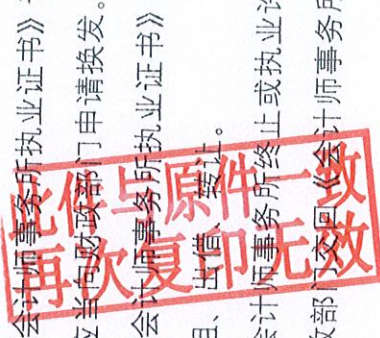 会计师事务所执业证书》
应当向财政部门申请换发。
会计师事务所执业证书》
租、出借、转让。
会计师事务所终止或执业许
政部门交回《会计师事务所
此件与原件一致
再次复印无效